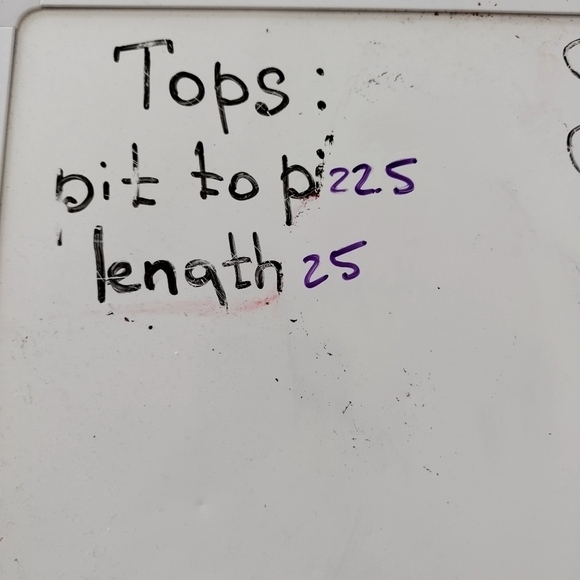 Tops:
pit to pi 225
length 25